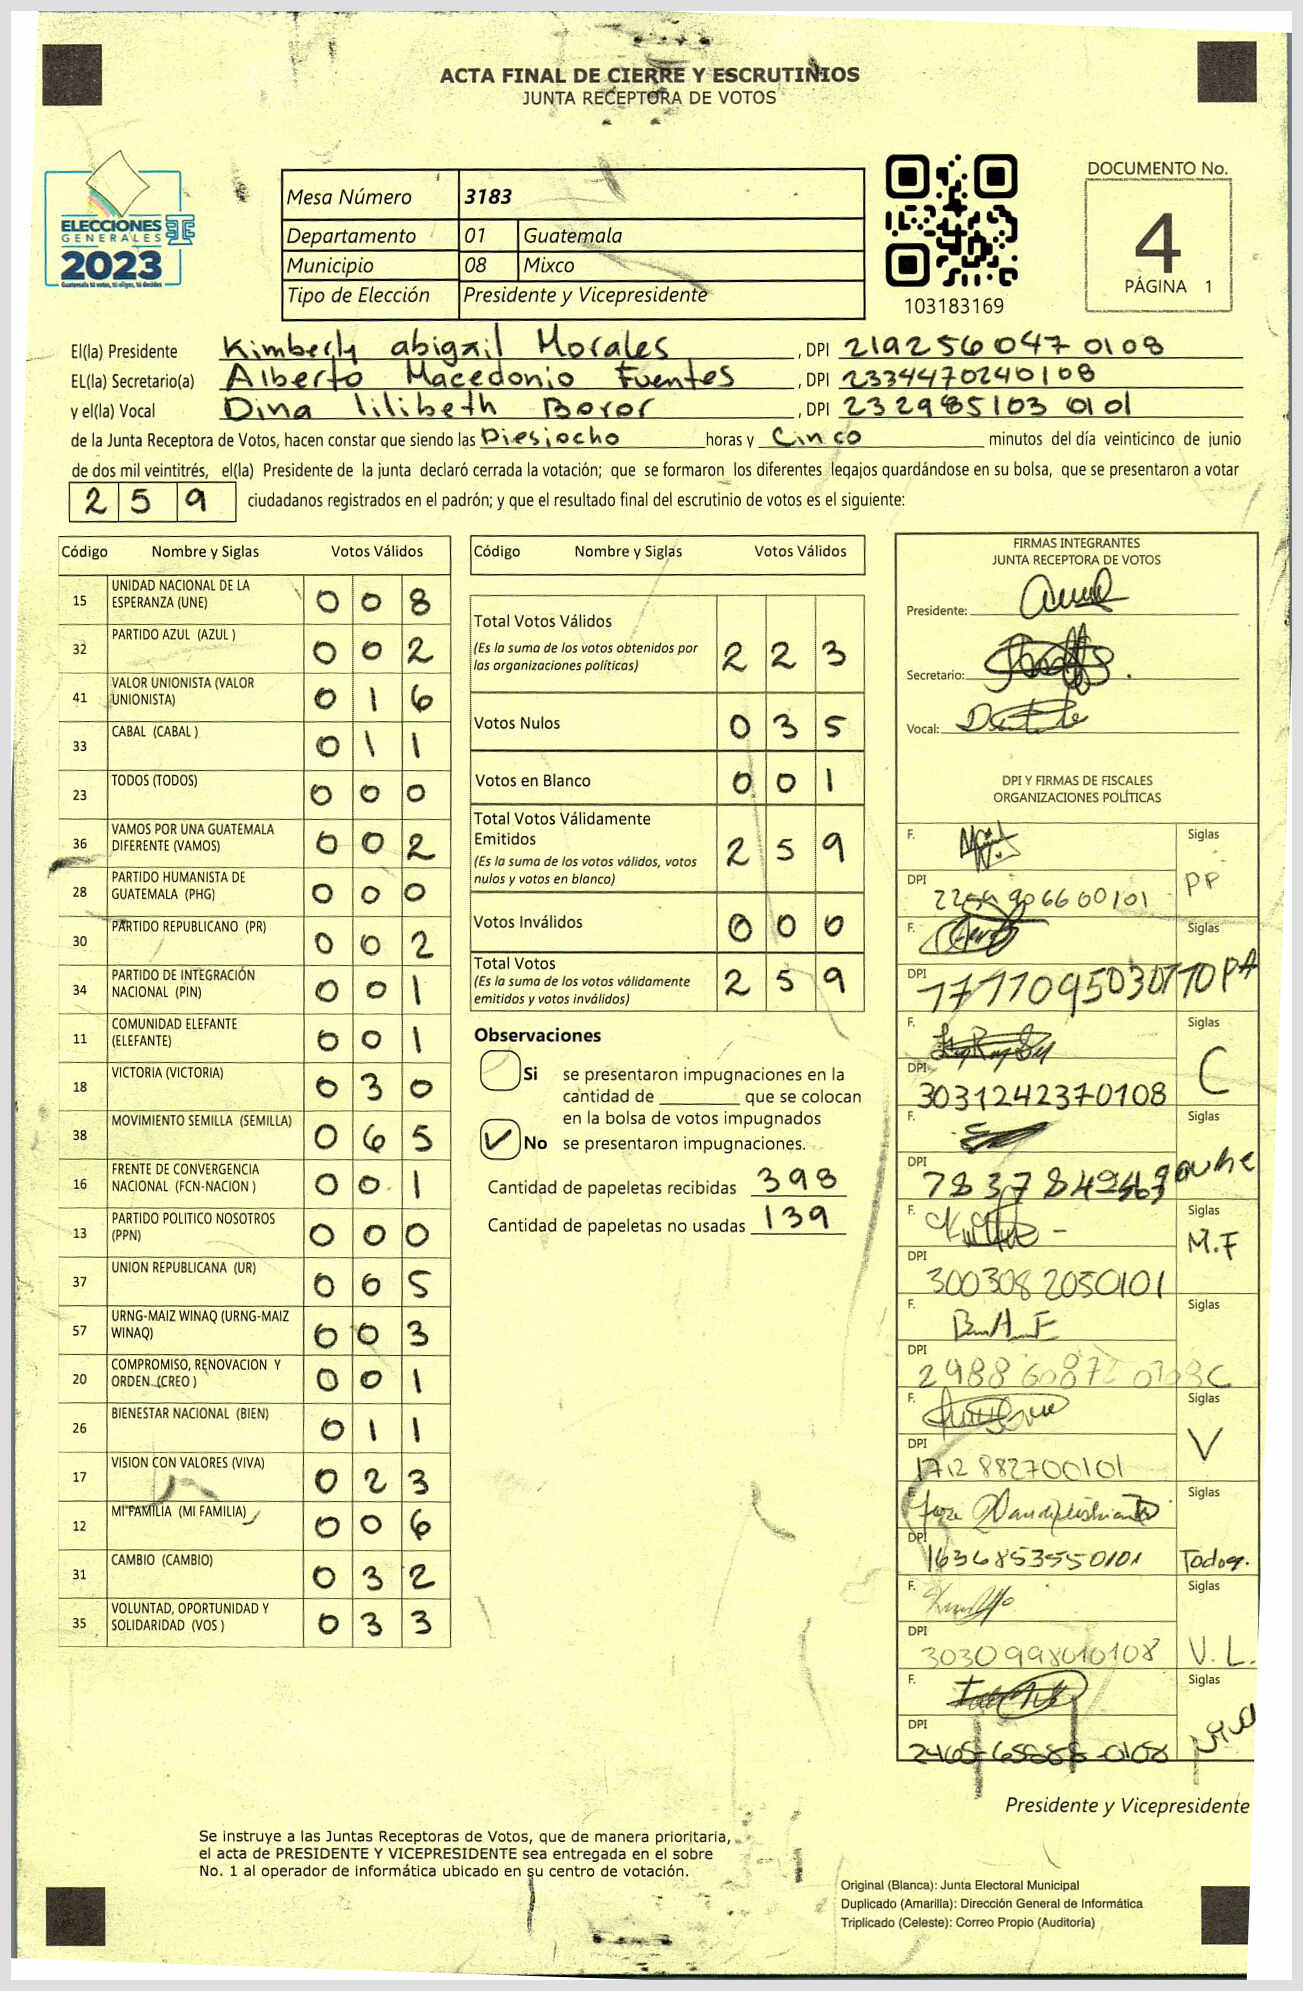 ACTA FINAL DE CIERRE Y ESCRUTINIOS
JUNTA RECEPTORA DE VOTOS
ELECCIONES
GENERALES
2023
Guatemala tú votas, tú eliges, tú decides
Mesa Número 3183
Departamento 01 Guatemala
Municipio 08 Mixco
Tipo de Elección Presidente y Vicepresidente
103183169
DOCUMENTO No.
4
PÁGINA 1
El(la) Presidente Kimberly abigail Morales, DPI 2192560470108
EL(la) Secretario(a) Alberto Macedonio Fuentes, DPI 2334470240108
y el(la) Vocal Dina lilibeth Boror, DPI 2329851030101
de la Junta Receptora de Votos, hacen constar que siendo las Diesiocho horas y Cinco minutos del día veinticinco de junio
de dos mil veintitrés, el(la) Presidente de la junta declaró cerrada la votación; que se formaron los diferentes legajos quardándose en su bolsa, que se presentaron a votar
259 ciudadanos registrados en el padrón; y que el resultado final del escrutinio de votos es el siguiente:
Código Nombre y Siglas Votos Válidos
15 UNIDAD NACIONAL DE LA ESPERANZA (UNE) 008
32 PARTIDO AZUL (AZUL ) 002
41 VALOR UNIONISTA (VALOR UNIONISTA) 016
33 CABAL (CABAL ) 011
23 TODOS (TODOS) 000
36 VAMOS POR UNA GUATEMALA DIFERENTE (VAMOS) 002
28 PARTIDO HUMANISTA DE GUATEMALA (PHG) 000
30 PARTIDO REPUBLICANO (PR) 002
34 PARTIDO DE INTEGRACIÓN NACIONAL (PIN) 001
11 COMUNIDAD ELEFANTE (ELEFANTE) 001
18 VICTORIA (VICTORIA) 030
38 MOVIMIENTO SEMILLA (SEMILLA) 065
16 FRENTE DE CONVERGENCIA NACIONAL (FCN-NACION ) 001
13 PARTIDO POLITICO NOSOTROS (PPN) 000
37 UNION REPUBLICANA (UR) 005
57 URNG-MAIZ WINAQ (URNG-MAIZ WINAQ) 003
20 COMPROMISO, RENOVACION Y ORDEN (CREO ) 001
26 BIENESTAR NACIONAL (BIEN) 011
17 VISION CON VALORES (VIVA) 023
12 MI FAMILIA (MI FAMILIA) 006
31 CAMBIO (CAMBIO) 032
35 VOLUNTAD, OPORTUNIDAD Y SOLIDARIDAD (VOS ) 033
Código Nombre y Siglas Votos Válidos
Total Votos Válidos 223
(Es la suma de los votos obtenidos por
las organizaciones políticas)
Votos Nulos 035
Votos en Blanco 001
Total Votos Válidamente
Emitidos 259
(Es la suma de los votos válidos, votos
nulos y votos en blanco)
Votos Inválidos 000
Total Votos 259
(Es la suma de los votos válidamente
emitidos y votos inválidos)
Observaciones
Si se presentaron impugnaciones en la
cantidad de ________ que se colocan
en la bolsa de votos impugnados
No se presentaron impugnaciones.
Cantidad de papeletas recibidas 398
Cantidad de papeletas no usadas 139
FIRMAS INTEGRANTES
JUNTA RECEPTORA DE VOTOS
Presidente:
Secretario:
Vocal:
DPI Y FIRMAS DE FISCALES
ORGANIZACIONES POLÍTICAS
F. Siglas
DPI PP
F. Siglas
DPI PA
F. Siglas
DPI 3031242370108 C
F. Siglas
DPI
F. Siglas
DPI 3003082050101 M.F
F. Siglas
DPI
F. Siglas
DPI 1712882700101 V
F. Siglas
DPI 1636853550101 Todos.
F. Siglas
DPI 3030998010108 V.L.
F. Siglas
DPI
Presidente y Vicepresidente
Se instruye a las Juntas Receptoras de Votos, que de manera prioritaria,
el acta de PRESIDENTE Y VICEPRESIDENTE sea entregada en el sobre
No. 1 al operador de informática ubicado en su centro de votación.
Original (Blanca): Junta Electoral Municipal
Duplicado (Amarilla): Dirección General de Informática
Triplicado (Celeste): Correo Propio (Auditoría)